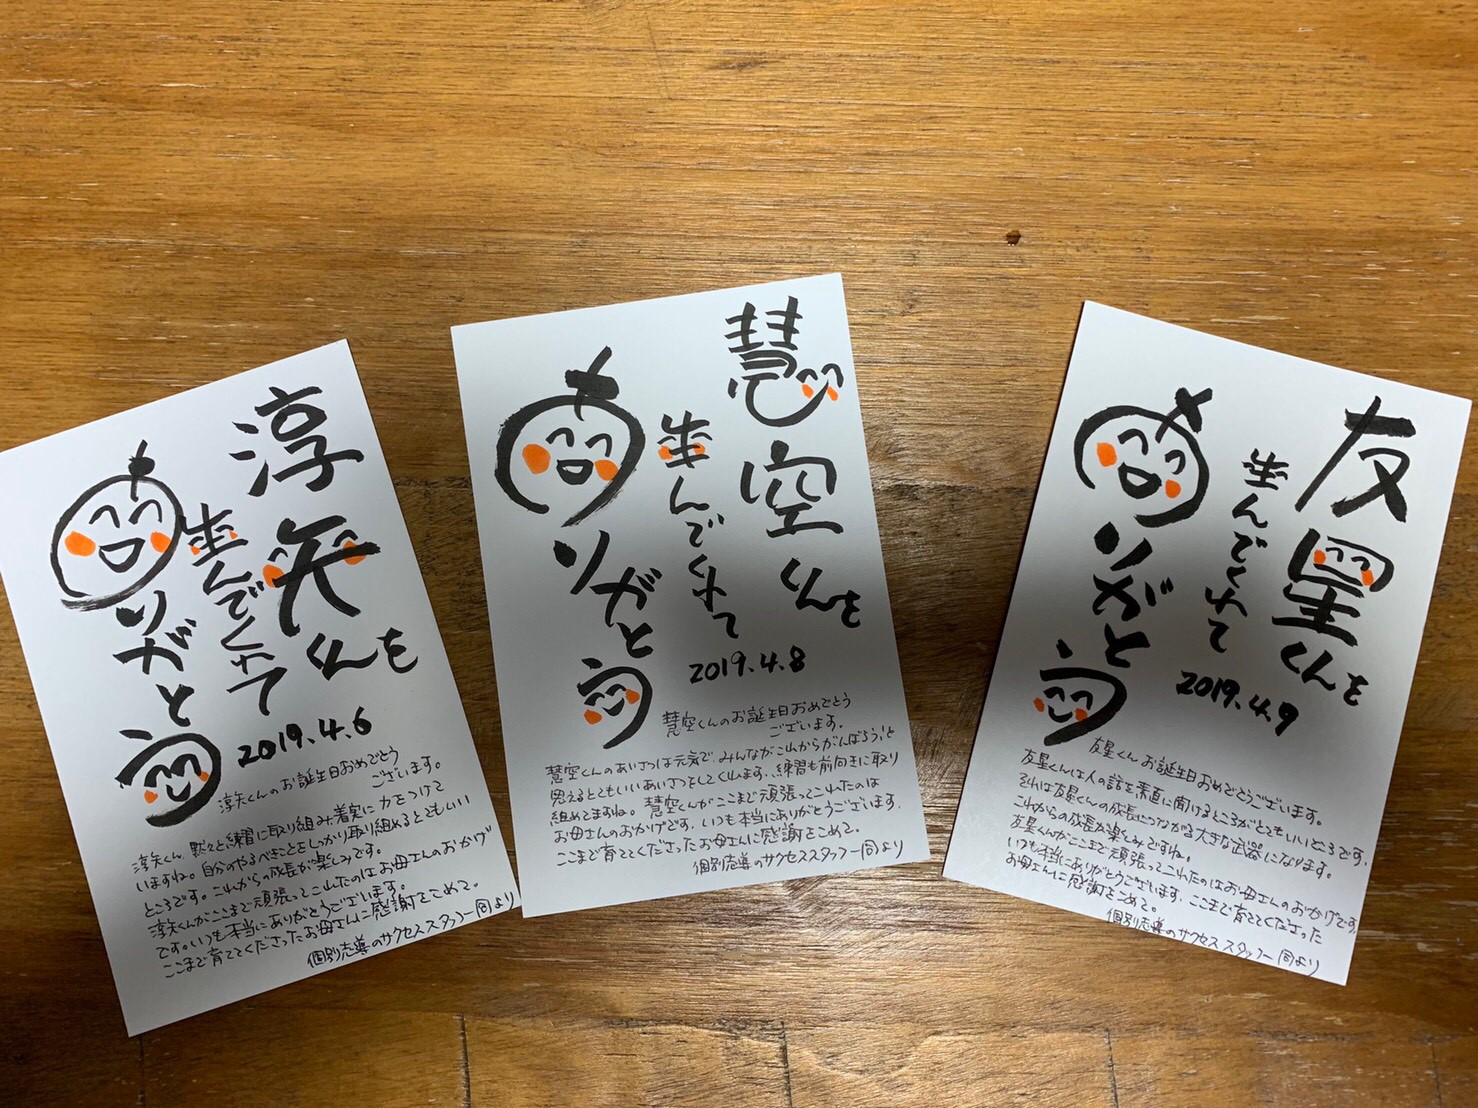 淳矢くんを
生んでくれて
ありがとう
2019.4.6
淳矢くんのお誕生日おめでとう
ございます。
淳矢くん、黙々と練習に取り組み着実に力をつけて
いますね。自分のやるべきことをしっかり取り組めるとてもいい
ところです。これからの成長が楽しみです。
淳矢くんがここまで頑張ってこれたのはお母さんのおかげ
です。いつも本当にありがとうございます。
ここまで育ててくださったお母さんに感謝をこめて。
個別志導のサクセススタッフ一同より
慧空くんを
生んでくれて
ありがとう
2019.4.8
慧空くんのお誕生日おめでとう
ございます。
慧空くんのあいさつは元気で、みんながこれからがんばろう、と
思えるとてもいいあいさつをしてくれます。練習も前向きに取り
組めてますね。慧空くんがここまで頑張ってこれたのは
お母さんのおかげです。いつも本当にありがとうございます。
ここまで育ててくださったお母さんに感謝をこめて。
個別志導のサクセススタッフ一同より
友星くんを
生んでくれて
ありがとう
2019.4.9
友星くんお誕生日おめでとうございます。
友星くんは人の話を素直に聞けるところがとてもいいところです。
それは友星くんの成長につながる大きな武器になります。
これからの成長が楽しみですね。
友星くんがここまで頑張ってこれたのはお母さんのおかげです。
いつも本当にありがとうございます。ここまで育ててくださった
お母さんに感謝をこめて。
個別志導のサクセススタッフ一同より